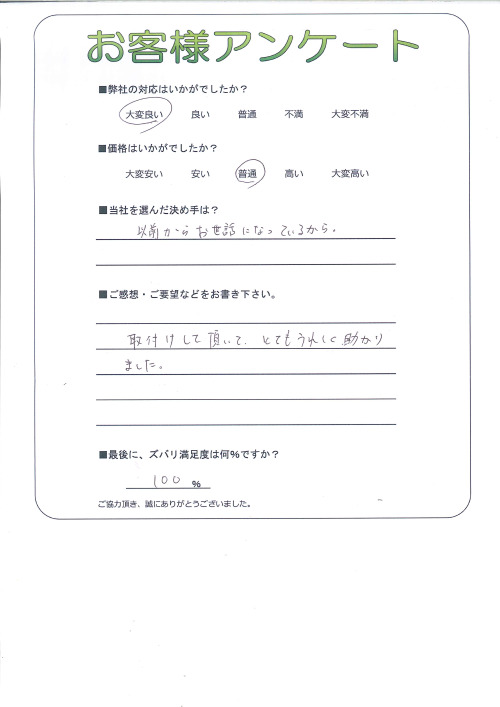 お客様アンケート
■弊社の対応はいかがでしたか？
大変良い 良い 普通 不満 大変不満
■価格はいかがでしたか？
大変安い 安い 普通 高い 大変高い
■当社を選んだ決め手は？
以前からお世話になっているから。
■ご感想・ご要望などをお書き下さい。
取付けして頂いて、とてもうれしく助かり
ました。
■最後に、ズバリ満足度は何%ですか？
100 %
ご協力頂き、誠にありがとうございました。